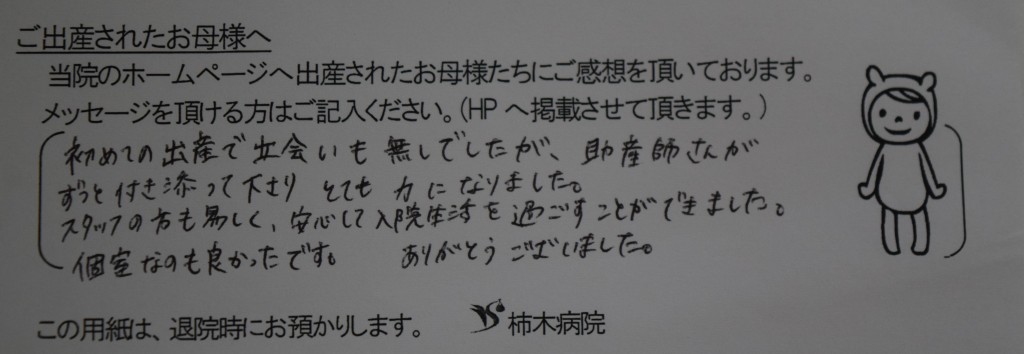 ご出産されたお母様へ
当院のホームページへ出産されたお母様たちにご感想を頂いております。
メッセージを頂ける方はご記入ください。(HPへ掲載させて頂きます。)
初めての出産で立会いも無しでしたが、助産師さんが
ずっと付き添って下さり とても 力になりました。
スタッフの方も易しく、安心して入院生活を過ごすことができました。
個室なのも良かったです。 ありがとうございました。
この用紙は、退院時にお預かりします。 柿木病院